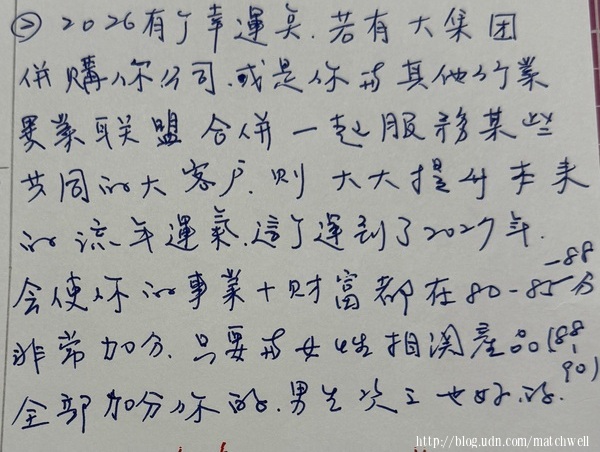 ㊁ 2026有个幸運矣.若有大集团
併購你公司.或是你與其他行業
異業联盟合併一起服務某些
共同的大客户.則大大提升本来
的流年運氣.這个運到了2027年.
會使你的事業+财富都在80-85-88分
非常加分.只要與女性相関產品(88-90)
全部加分你的.男生次之也好的.
http://blog.udn.com/matchwell